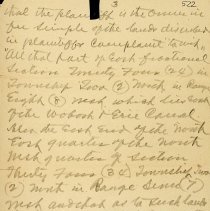 3 522
that the plaintiff is the owner in
fee simple of the lands described
in plaintiff's complaint to wit,
"All that part of East fractional
Section Twenty Four (24) in
Township Two (2) North in Range
Eight (8) west which lies East
of the Wabash & Erie Canal
Also the East End of the North
East quarter of the North
West quarter of Section
Thirty Four (34) Township
(2) North in Range Seven (7)
West and that as to such lands